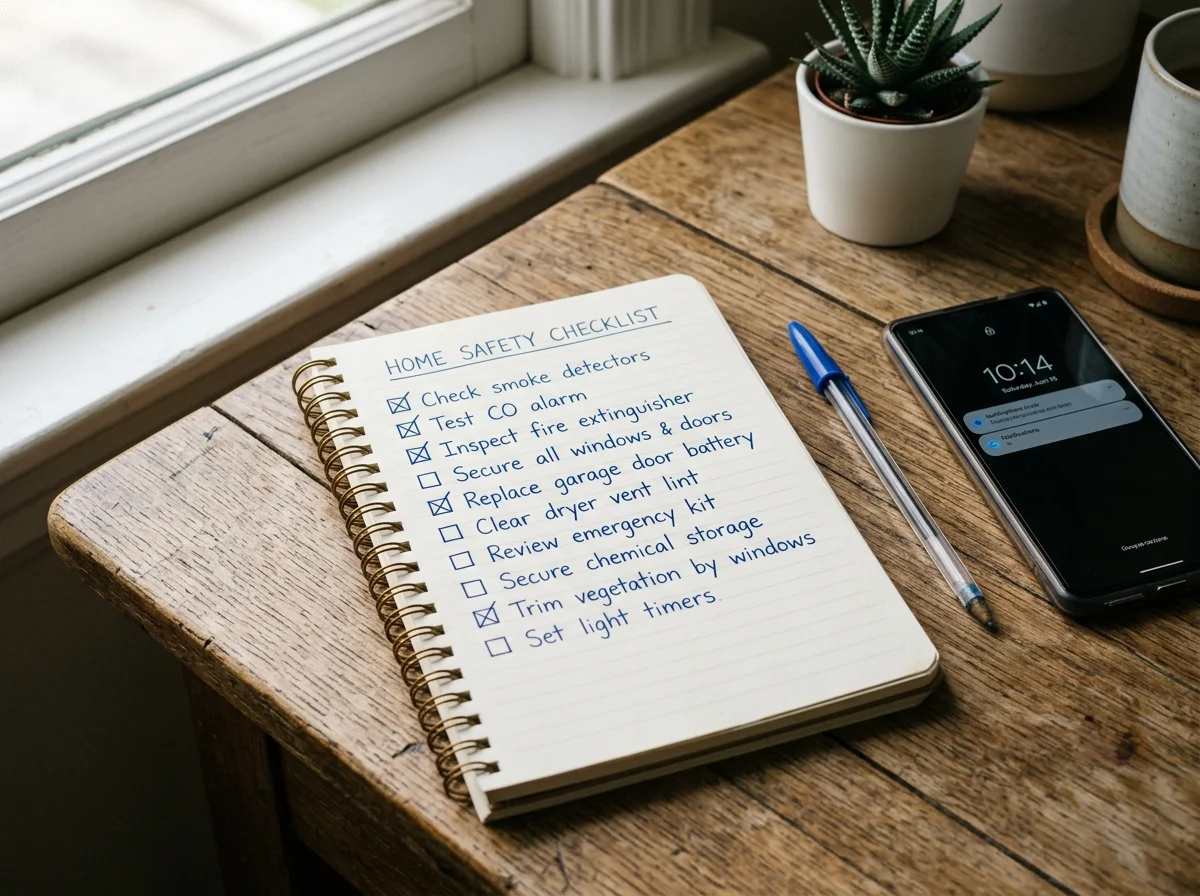 HOME SAFETY CHECKLIST
☒ Check smoke detectors
☒ Test CO alarm
☒ Inspect fire extinguisher
☐ Secure all windows & doors
☒ Replace garage door battery
☐ Clear dryer vent lint
☐ Review emergency kit
☐ Secure chemical storage
☒ Trim vegetation by windows
☐ Set light timers.
10:14
Saturday,